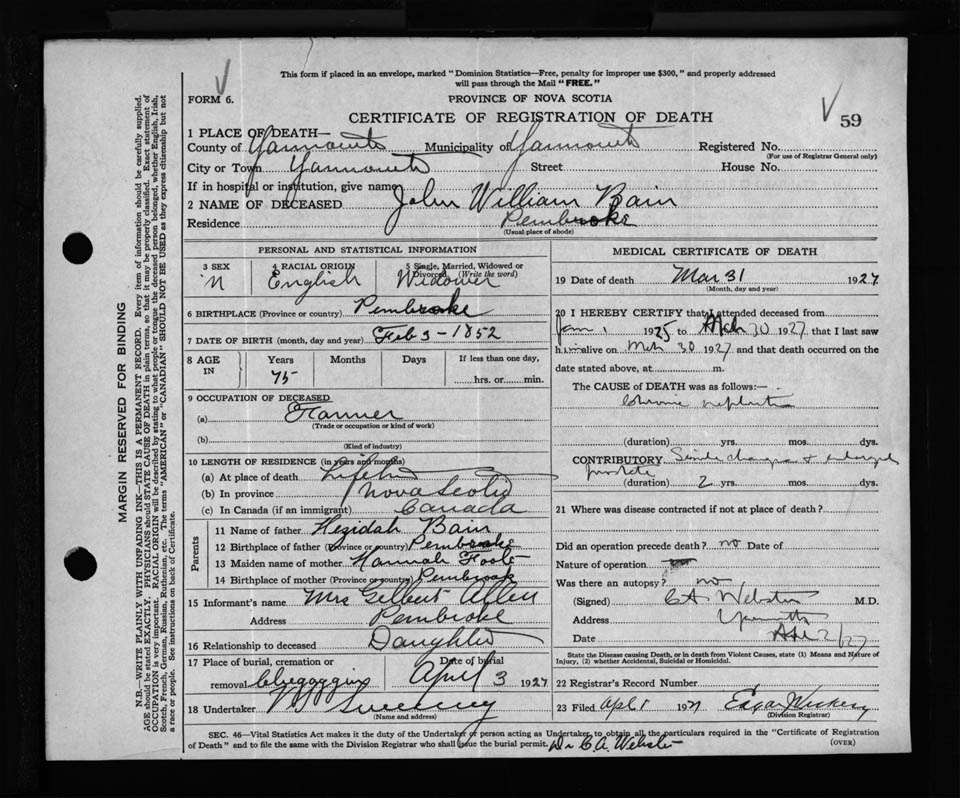 This form if placed in an envelope, marked "Dominion Statistics—Free, penalty for improper use $300," and properly addressed
will pass through the Mail "FREE."
FORM 6.
PROVINCE OF NOVA SCOTIA
59
CERTIFICATE OF REGISTRATION OF DEATH
1 PLACE OF DEATH—
County of Yarmouth Municipality of Yarmouth Registered No.
(For use of Registrar General only)
City or Town Yarmouth Street House No.
If in hospital or institution, give name
2 NAME OF DECEASED John William Bain
Residence Pembroke
(Usual place of abode)
PERSONAL AND STATISTICAL INFORMATION
3 SEX M
4 RACIAL ORIGIN English
5 Single, Married, Widowed or Divorced (Write the word) Widower
6 BIRTHPLACE (Province or country) Pembroke
7 DATE OF BIRTH (month, day and year) Feb 3 - 1852
8 AGE IN Years Months Days If less than one day,
75 hrs. or min.
9 OCCUPATION OF DECEASED
(a) Farmer
(Trade or occupation or kind of work)
(b)
(Kind of industry)
10 LENGTH OF RESIDENCE (in years and months)
(a) At place of death Lifetime
(b) In province Nova Scotia
(c) In Canada (if an immigrant) Canada
Parents
11 Name of father Bain
12 Birthplace of father (Province or country) Pembroke
13 Maiden name of mother Hannah Foote
14 Birthplace of mother (Province or country) Pembrook
15 Informant's name Mrs Gelbert Allen
Address Pembroke
16 Relationship to deceased Daughter
17 Place of burial, cremation or Date of burial
removal April 3 1927
18 Undertaker Sweeney
(Name and address)
MEDICAL CERTIFICATE OF DEATH
19 Date of death Mar 31 1927
(Month, day and year)
20 I HEREBY CERTIFY that I attended deceased from
Jan 1 1925 to Mch 30 1927 that I last saw
him alive on Mch 30 1927 and that death occurred on the
date stated above, at m.
The CAUSE of DEATH was as follows:—
Chronic nephritis
(duration) yrs. mos. dys.
CONTRIBUTORY Senile changes & enlarged
prostate
(duration) 2 yrs. mos. dys.
21 Where was disease contracted if not at place of death?
Did an operation precede death? no Date of
Nature of operation
Was there an autopsy? no
(Signed) CA Webster M.D.
Address Yarmouth
Date Apl 2/27
State the Disease causing Death, or in death from Violent Causes, state (1) Means and Nature of
Injury, (2) whether Accidental, Suicidal or Homicidal.
22 Registrar's Record Number
23 Filed Apl 1927 Edgar
(Division Registrar)
SEC. 46—Vital Statistics Act makes it the duty of the Undertaker or person acting as Undertaker to obtain all the particulars required in the "Certificate of Registration
of Death" and to file the same with the Division Registrar who shall issue the burial permit. Dr C.A. Webster
(OVER)
MARGIN RESERVED FOR BINDING
N.B.—WRITE PLAINLY WITH UNFADING INK—THIS IS A PERMANENT RECORD. Every item of information should be carefully supplied.
AGE should be stated EXACTLY. PHYSICIANS should STATE CAUSE OF DEATH in plain terms, so that it may be properly classified. Exact statement of
OCCUPATION is very important. RACIAL ORIGIN will be described by stating to what people or tongue the deceased person belonged, whether English, Irish,
Scotch, French, German, Russian, Ruthenian, etc. The terms "AMERICAN" or "CANADIAN" SHOULD NOT BE USED as they express citizenship but not
a race or people. See instructions on back of Certificate.